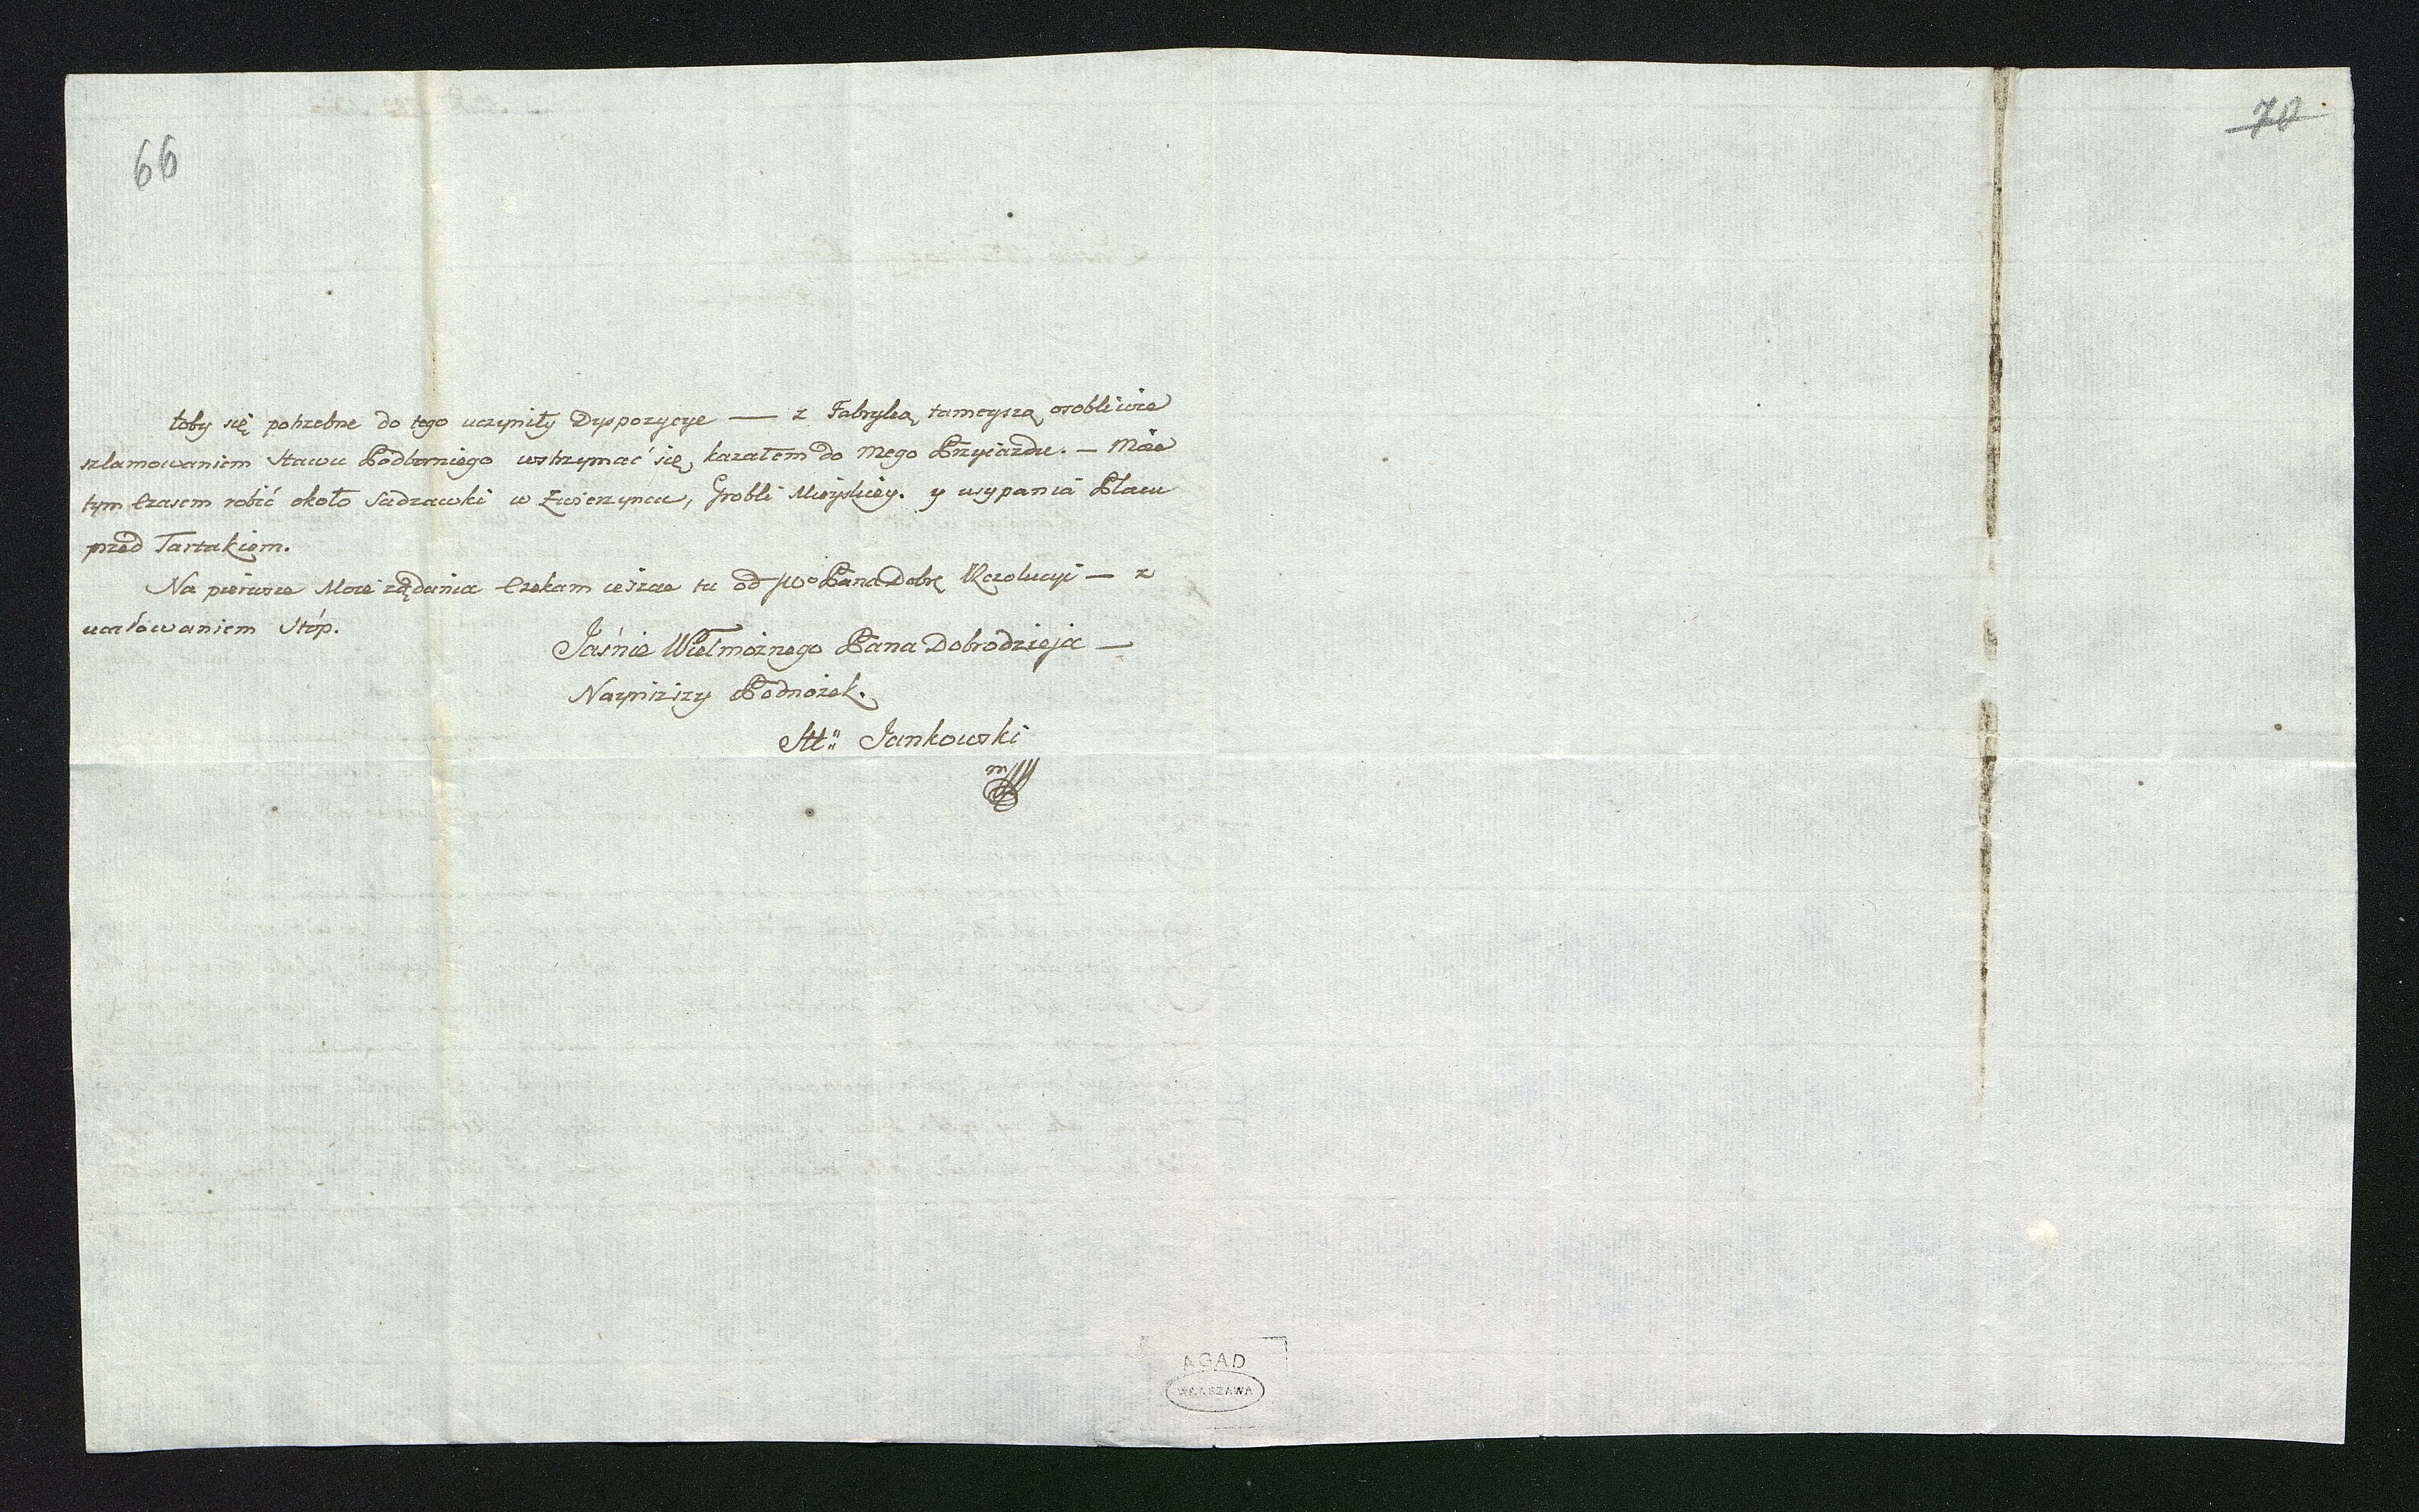 66
70
toby się potrzebne do tego uczyniły Dyspozycye — z Fabryką tameyszą osobliwie
szlamowaniem Stawu Podborniego wstrzymać się kazałem do mego Przyiazdu. — Może
tym czasem robić około Sadzawki w Zwierzyncu, Grobli Mieyskiey. y usypania Placu
przed Tartakiem.
Na pierwsze Moie ządania czekam ieszcze tu od JWo Pana Dobr Rezolucyi — z
ucałowaniem Stóp.
Jaśnie Wielmożnego Pana Dobrodzieja —
Nayniższy Podnożek.
Jankowski
AGAD
WARSZAWA